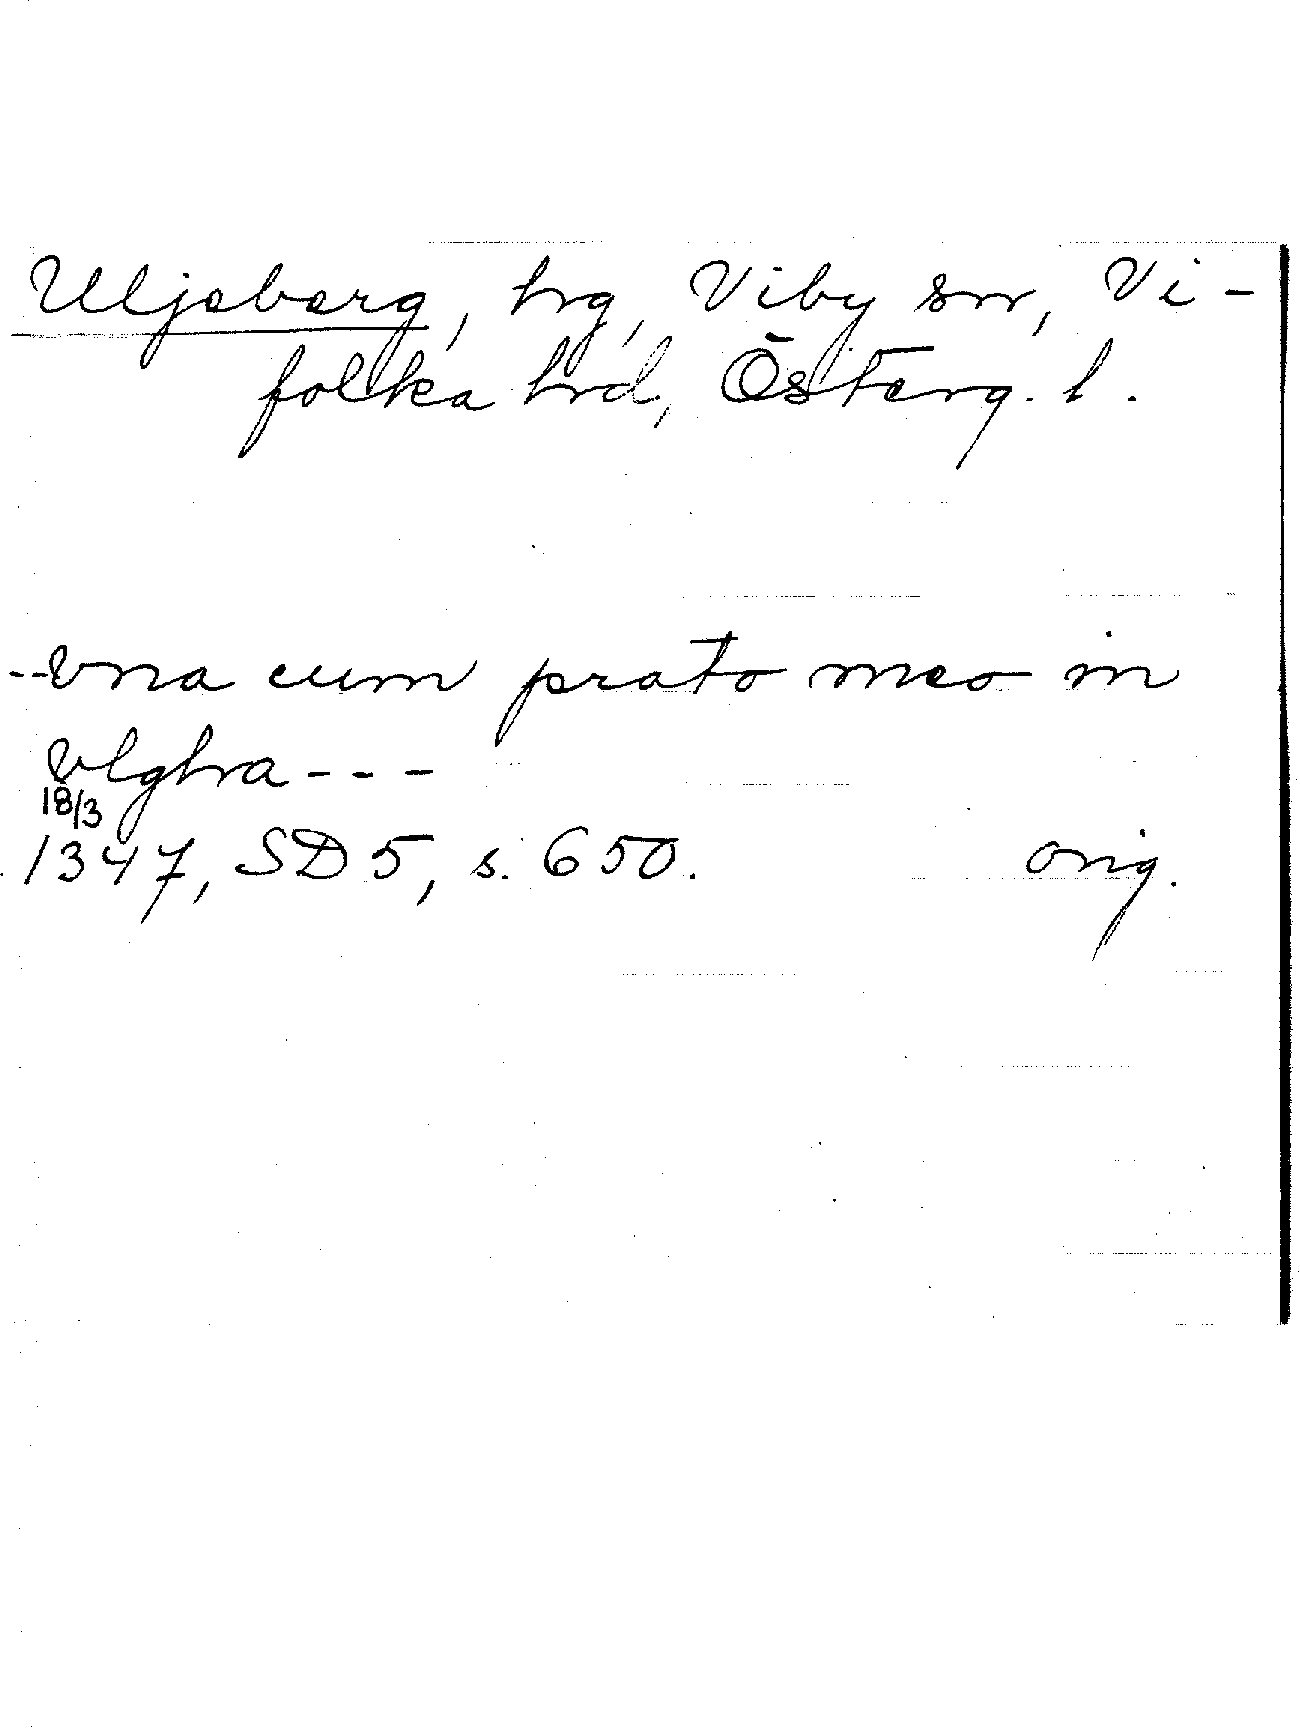 Uljeberg, hg, Viby sn, Vi-
folka hd, Österg. l.
--vna cum prato meo in
vlghra---
18/3
1347, SD 5, s. 650. orig.